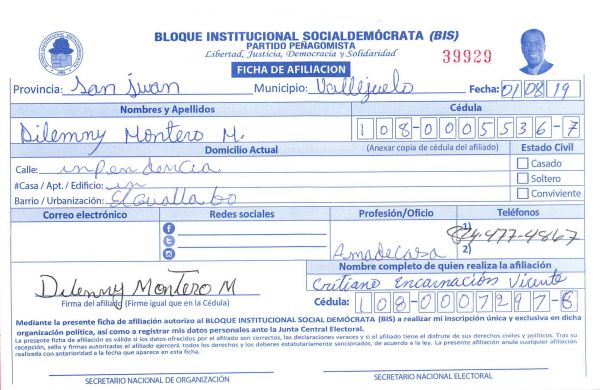 BLOQUE INSTITUCIONAL SOCIALDEMÓCRATA (BIS)
PARTIDO PEÑAGOMISTA
Libertad, Justicia, Democracia y Solidaridad
39929
FICHA DE AFILIACION
Provincia: San Juan Municipio: Vallejuelo Fecha: 01/08/19
Nombres y Apellidos Cédula
Dilemny Montero M. 108-0005536-7
Domicilio Actual (Anexar copia de cédula del afiliado) Estado Civil
Calle: inpendencia Casado
#Casa / Apt. / Edificio: sn Soltero
Barrio / Urbanización: El Guallabo Conviviente
Correo electrónico Redes sociales Profesión/Oficio Teléfonos
1) 829-477-4867
Amadecasa 2)
Nombre completo de quien realiza la afiliación
Dilenny Montero M Critiano Encarnación Vicente
Firma del afiliado (Firme igual que en la Cédula) Cédula: 108-0007297-8
Mediante la presente ficha de afiliación autorizo al BLOQUE INSTITUCIONAL SOCIAL DEMÓCRATA (BIS) a realizar mi inscripción única y exclusiva en dicha
organización política, así como a registrar mis datos personales ante la Junta Central Electoral.
La presente ficha de afiliación es válida si los datos ofrecidos por el afiliado son correctos, las declaraciones veraces y si el afiliado tiene el disfrute de sus derechos civiles y políticos. Tras su
recepción, sello y firmas autorizadas el afiliado ejercerá todos los derechos y los deberes estatutariamente sancionados, de acuerdo a la ley. La presente afiliación anula cualquier afiliación
realizada con anterioridad a la fecha que aparece en esta ficha.
SECRETARIO NACIONAL DE ORGANIZACIÓN SECRETARIO NACIONAL ELECTORAL